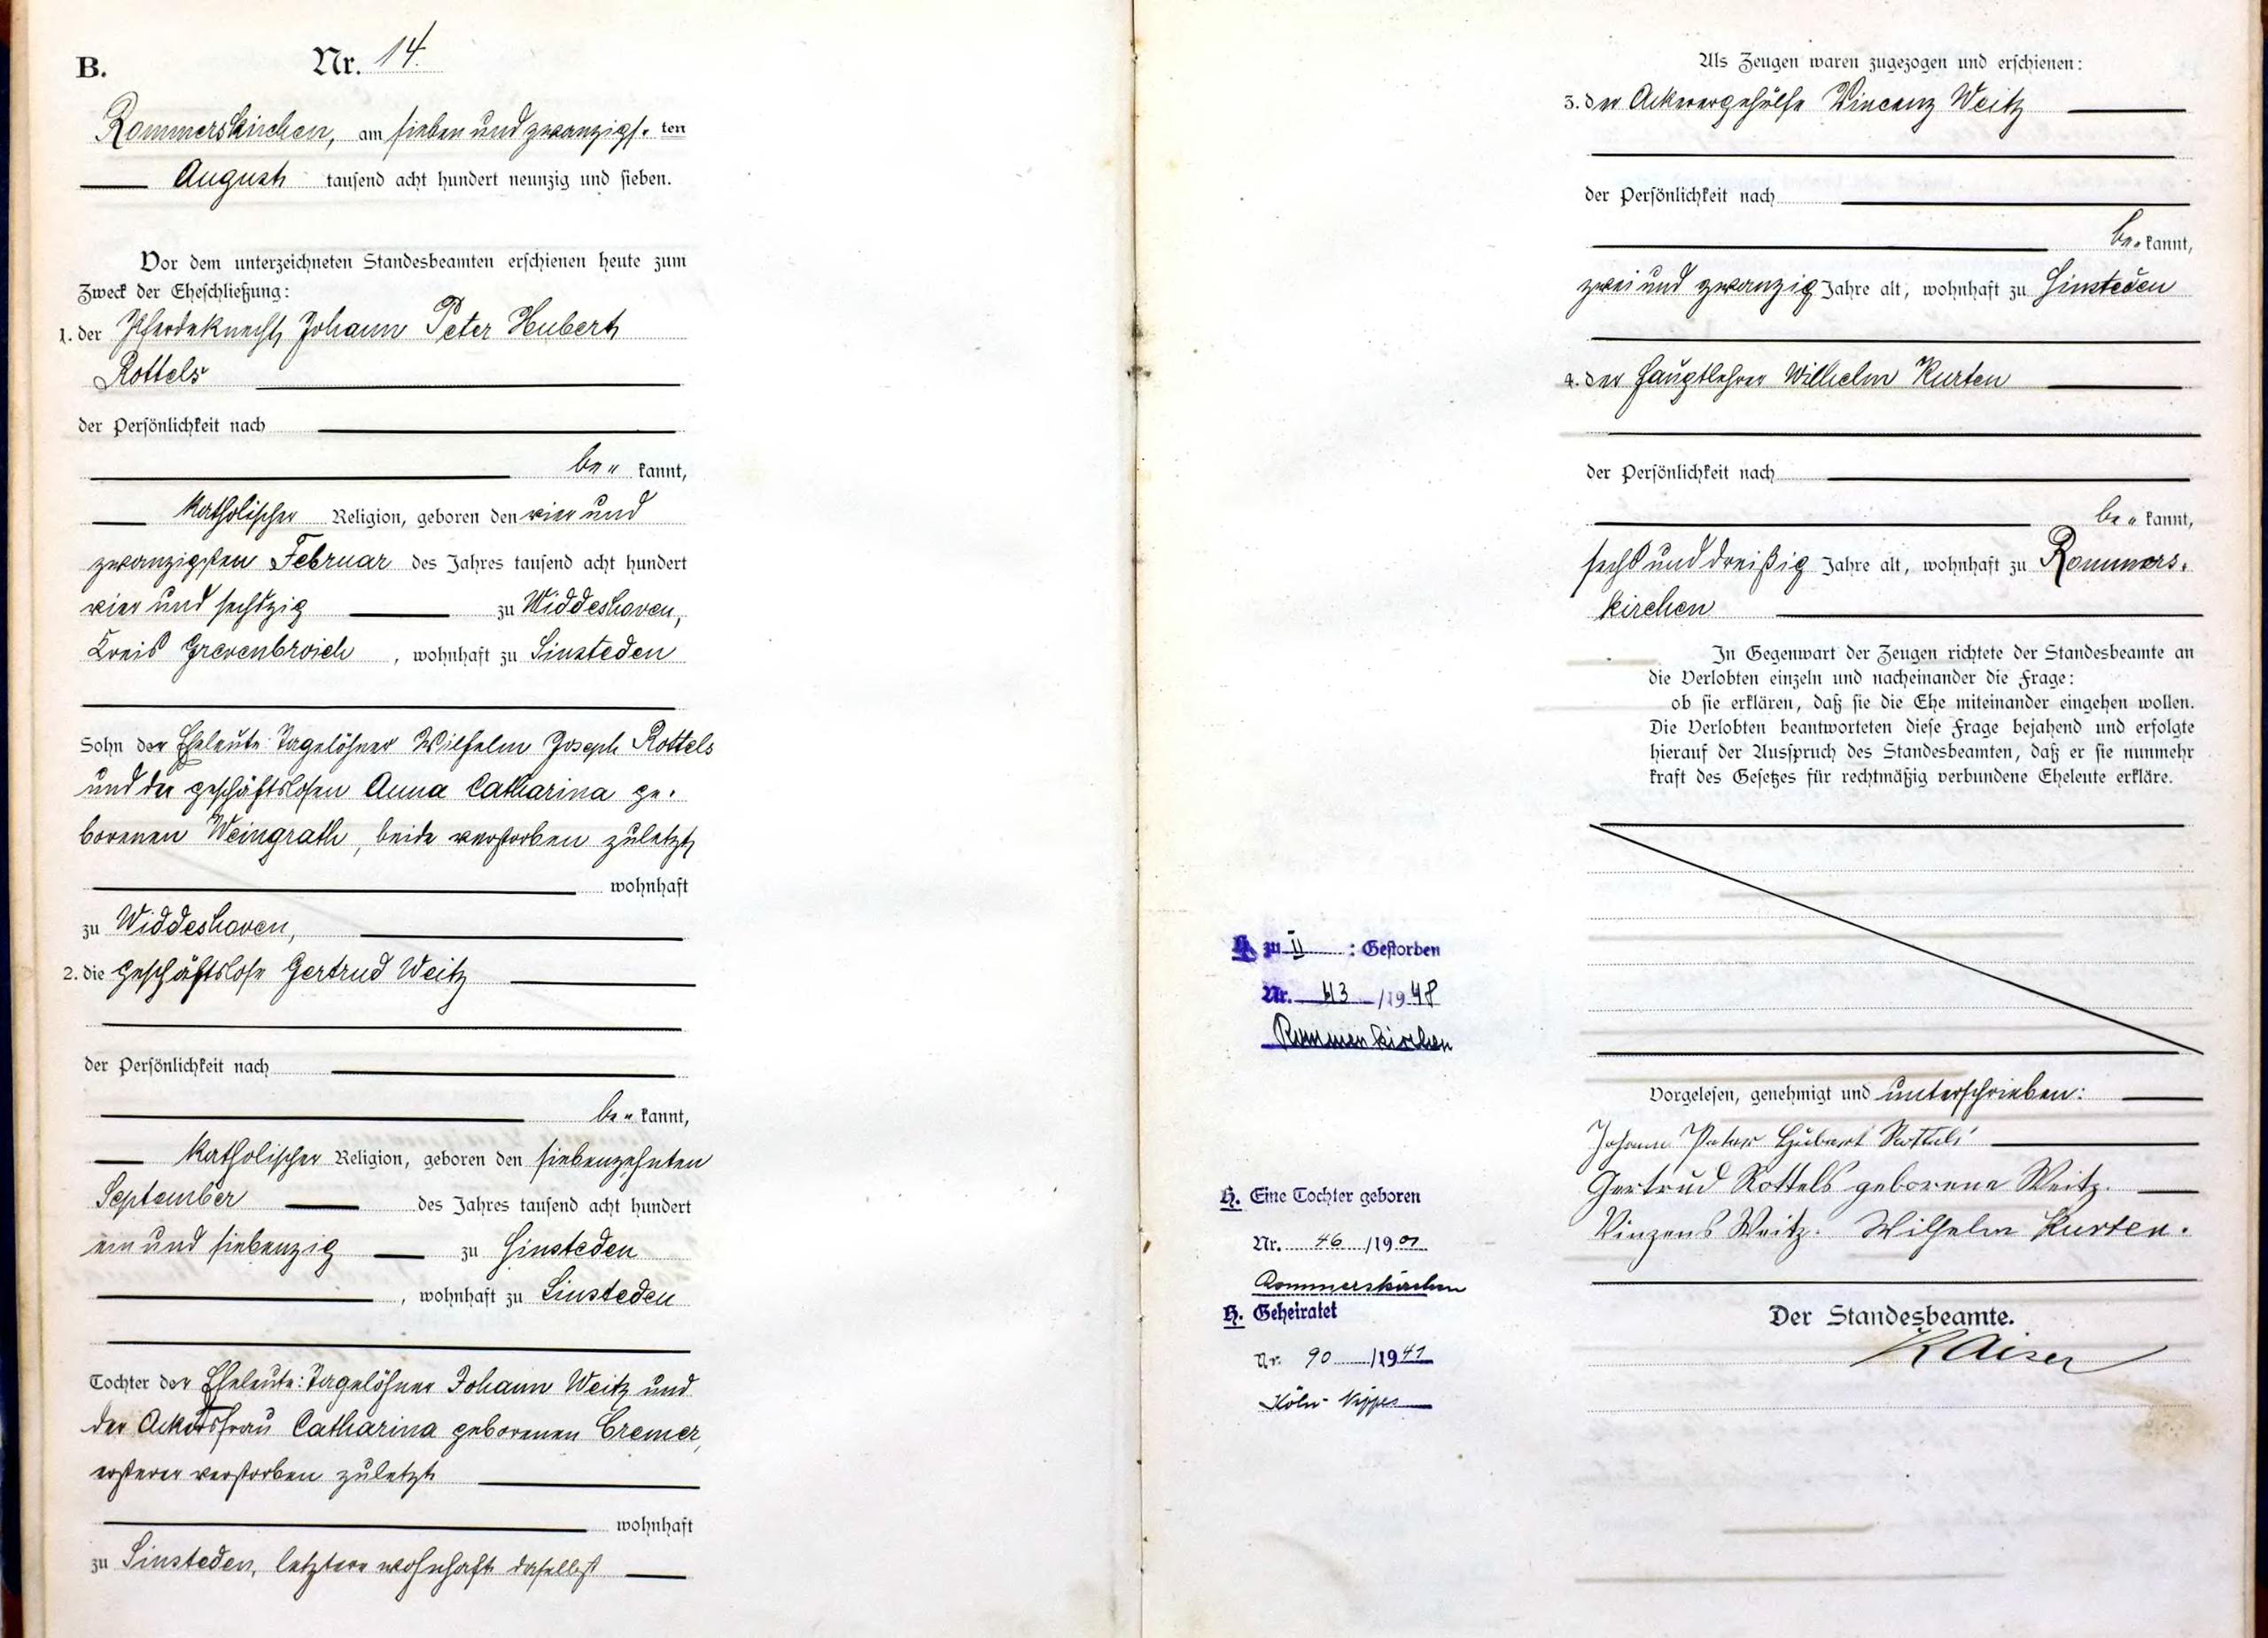 B. Nr. 14.
Rommerskirchen, am sieben und zwanzigs. ten
August tausend acht hundert neunzig und sieben.
Vor dem unterzeichneten Standesbeamten erschienen heute zum
Zweck der Eheschließung:
1. der Pferdeknecht Johann Peter Hubert
Rottels
der Persönlichkeit nach
be= kannt,
katholischer Religion, geboren den vier und
zwanzigsten Februar des Jahres tausend acht hundert
vier und sechszig zu Widdeshoven,
Kreis Grevenbroich, wohnhaft zu Sinsteden
Sohn der Eheleute: Tagelöhner Wilhelm Joseph Rottels
und der geschäftslosen Anna Catharina ge=
borenen Weingrath, beide verstorben zuletzt
wohnhaft
zu Widdeshoven,
2. die geschäftslose Gertrud Weitz
der Persönlichkeit nach
be= kannt,
katholischer Religion, geboren den siebenzehnten
September des Jahres tausend acht hundert
ein und siebenzig zu Sinsteden
, wohnhaft zu Sinsteden
Tochter der Eheleute: Tagelöhner Johann Weitz und
der Ackersfrau Catharina geborenen Cremer,
ersterer verstorben zuletzt
wohnhaft
zu Sinsteden, letztere wohnhaft daselbst
Als Zeugen waren zugezogen und erschienen:
3. der Ackerergehülfe Vincenz Weitz
der Persönlichkeit nach
be= kannt,
zwei und zwanzig Jahre alt, wohnhaft zu Sinsteden
4. der Hauptlehrer Wilhelm Kurten
der Persönlichkeit nach
be= kannt,
sechs und dreißig Jahre alt, wohnhaft zu Rommers=
kirchen
In Gegenwart der Zeugen richtete der Standesbeamte an
die Verlobten einzeln und nacheinander die Frage:
ob sie erklären, daß sie die Ehe miteinander eingehen wollen.
Die Verlobten beantworteten diese Frage bejahend und erfolgte
hierauf der Ausspruch des Standesbeamten, daß er sie nunmehr
kraft des Gesetzes für rechtmäßig verbundene Eheleute erkläre.
Vorgelesen, genehmigt und unterschrieben:
Johann Peter Hubert Rottels
Gertrud Rottels geborene Weitz.
Vinzens Weitz. Wilhelm Kurten.
Der Standesbeamte.
Kaiser
H. zu II : Gestorben
Nr. 43 /1948
Rommerskirchen
H. Eine Tochter geboren
Nr. 46 /1901
Rommerskirchen
H. Geheiratet
Nr. 90 /1941
Köln-Nippes